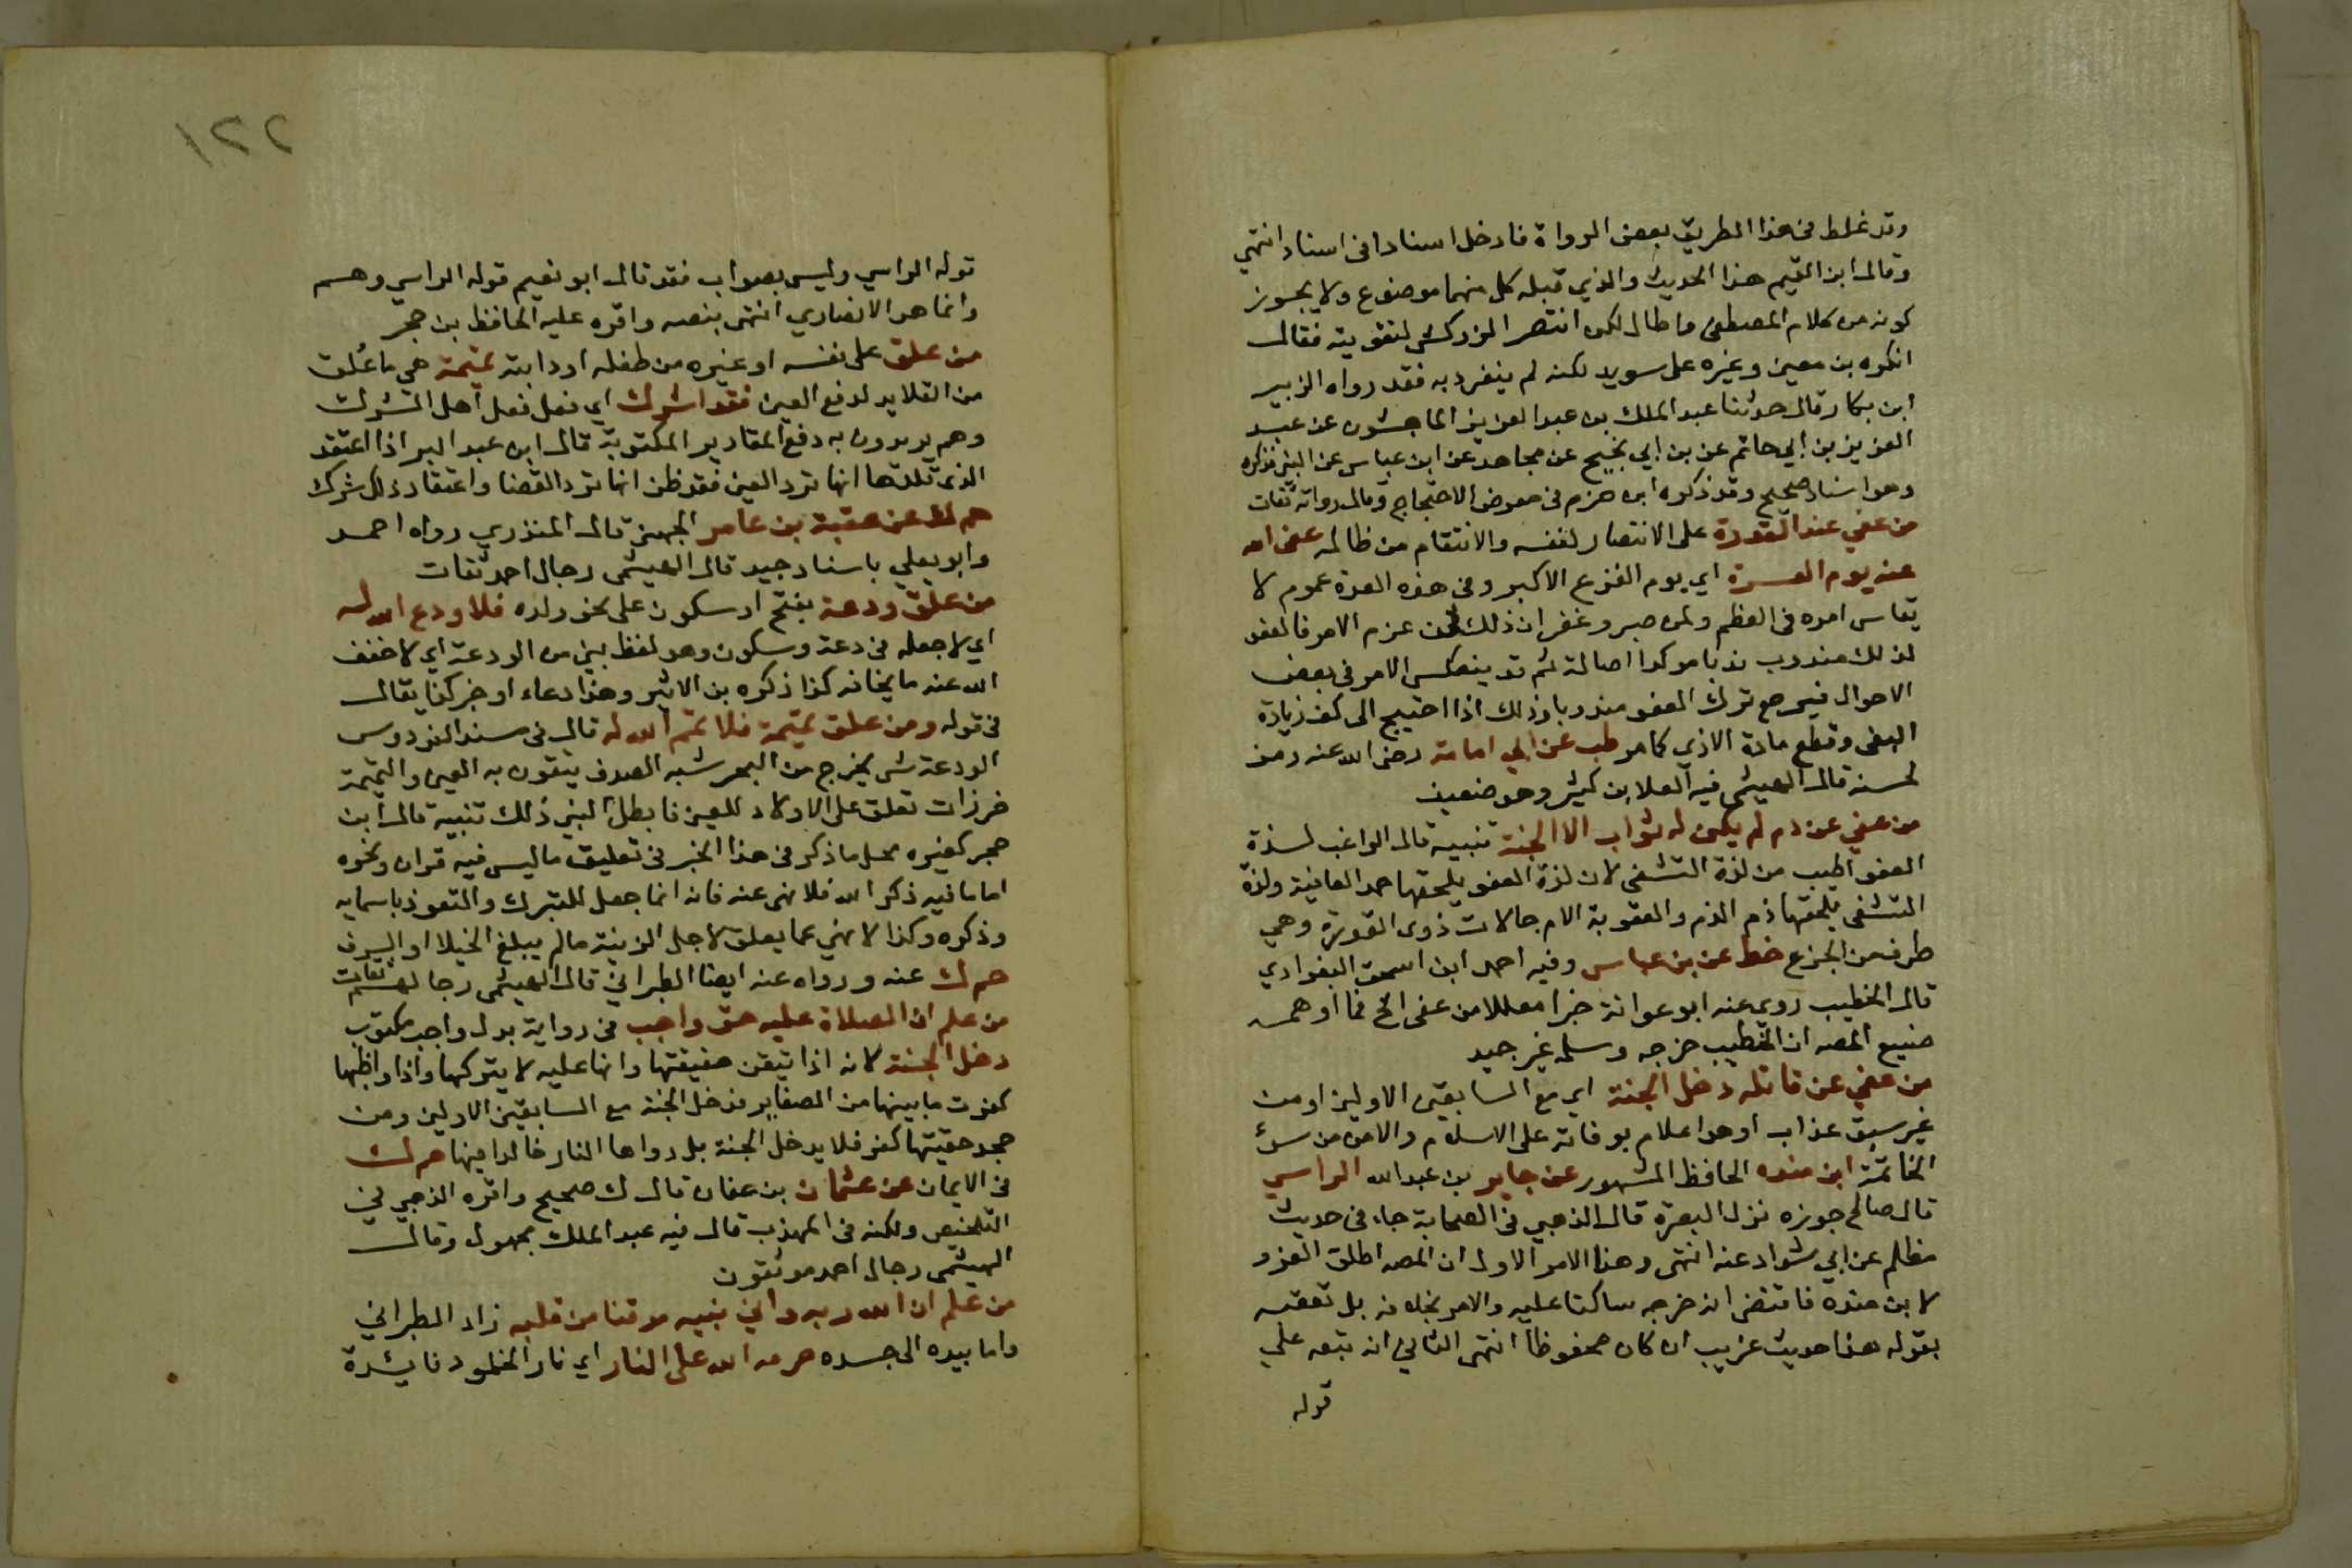 وقد غلط في هذا الطريق بعض الرواة فادخل اسنادا في اسناد انتهي
وقال ابن القيم هذا الحديث والذي قبله كل منهما موضوع ولا يجوز
كونه من كلام المصطفى واطال لكن انتصر الزركشي لتقويته فقال
انكره بن معين وغيره على سويد لكنه لم ينفرد به فقد رواه الزبير
ابن بكار قال حدثنا عبد الملك بن عبد العزيز الماجشون عن عبد
العزيز بن ابي حاتم عن بن ابي نجيح عن مجاهد عن ابن عباس عن النبي فذكره
وهو اسناد صحيح وقد ذكره ابن حزم في معرض الاحتجاج وقال رواته ثقات
من عفي عند القدرة على الانتصار لنفسه والانتقام من ظالمه عفى الله
عنه يوم العسرة اي يوم الفزع الاكبر وفي هذه العدة عموم لا
يقاس امره في العظم ولمن صبر وغفر ان ذلك لمن عزم الامور فالعفو
لذلك مندوب ندبا موكدا اصالة ثم قد ينعكس الامر في بعض
الاحوال فيرجع ترك العفو مندوبا وذلك اذا احتيج الى كف زيادة
البغى وقطع مادة الاذي كما مر طب عن ابي امامة رضي الله عنه رمز
لحسنه قال الهيثمي فيه العلا بن كثير وهو ضعيف
من عفي عن دم لم يكن له ثواب الا الجنة تنبيه قال الراغب لذة
العفو اطيب من لذة التشفى لان لذة العفو يلحقها حمد العافية ولذة
التشفى يلحقها ذم الندم والعقوبة الام حالات ذوى القدرة وهي
طرف من الجزع خط عن بن عباس وفيه احمد ابن اسحق البغدادي
قال الخطيب روى عنه ابو عوانة خبرا معللا من عفى الخ فما اوهمه
صنيع المصه ان الخطيب خرجه وسلمه غير جيد
من عفي عن قاتله دخل الجنة اي مع السابقين الاولين او من
غير سبق عذاب او هو اعلام بوفاته على الاسلام والامن من سوء
الخاتمة ابن منده الحافظ المشهور عن جابر بن عبد الله الراسي
قال صالح جوزه نزل البصرة قال الذهبي في الصحابة جاء في حديث
مظلم عن ابي شداد عنه انتهى وهنا الامر الاول ان المصه اطلق العزو
لابن منده فاقتضى انه خرجه ساكتا عليه والامر بخلافه بل تعقبه
بقوله هذا حديث غريب ان كان محفوظا انتهى الثاني انه تبعه علي
قوله
١٢٢
قوله الراسي وليس بصواب فقد قال ابو نعيم قوله الراسي وهم
وانما هو الانصاري انتهى بنصه واقره عليه الحافظ بن حجر
من علق على نفسه او غيره من طفله او دابته تميمة هي ما عُلق
من القلايد لدفع العين فقد اشرك اي فعل فعل اهل الشرك
وهم يريدون به دفع المقادير المكتوبة قال ابن عبد البر اذا اعتقد
الذي قلدها انها ترد العين فقد ظن انها ترد القضا واعتقاد ذلك شرك
حم ك عن عقبة بن عامر الجهني قال المنذري رواه احمد
وابو يعلي باسناد جيد قال الهيثمى رجال احمد ثقات
من علق ودعة بفتح او سكون على نحو ولده فلا ودع الله له
اي لا جعله في دعة وسكون وهو لفظ بني من الودعة اي لا خفف
الله عنه ما يخافه كذا ذكره بن الاثير وهذا دعاء او خبر كذا يقال
في قوله ومن علق تميمة فلا تمم الله له قال في مسند الفردوس
الودعة شى يخرج من البحر شبه الصدف يتقون به العين والتميمة
خرزات تعلق على الاولاد للعين فابطل النبي ذلك تنبيه قال ابن
حجر كغيره محل ما ذكر في هذا الخبر في تعليق ما ليس فيه قران ونحوه
اما ما فيه ذكر الله فلا نهى عنه فانه انما جعل للتبرك والتعوذ باسمايه
وذكره وكذا لا نهي عما يعلق لاجل الزينة مالم يبلغ الخيلا او السرف
حم ك عنه ورواه عنه ايضا الطبراني قال الهيثمى رجالهم ثقات
من علم ان الصلاة عليه حق واجب في رواية بدل واجب مكتوب
دخل الجنة لانه اذا تيقن حقيقتها وانها عليه لا يتركها واذا واظبها
كفرت ما بينها من الصغاير فدخل الجنة مع السابقين الاولين ومن
جحد حقيتها كفر فلا يدخل الجنة بل دواها النار خالدا فيها حم ك
في الايمان عن عثمان بن عفان قال ك صحيح واقره الذهبي في
التلخيص ولكنه في المهذب قال فيه عبد الملك مجهول وقال
الهيثمى رجال احمد موثقون
من علم ان الله ربه واني نبيه موقنا من قلبه زاد الطبراني
واما بيده الى جسده حرمه الله على النار اي نار الخلود فايدة